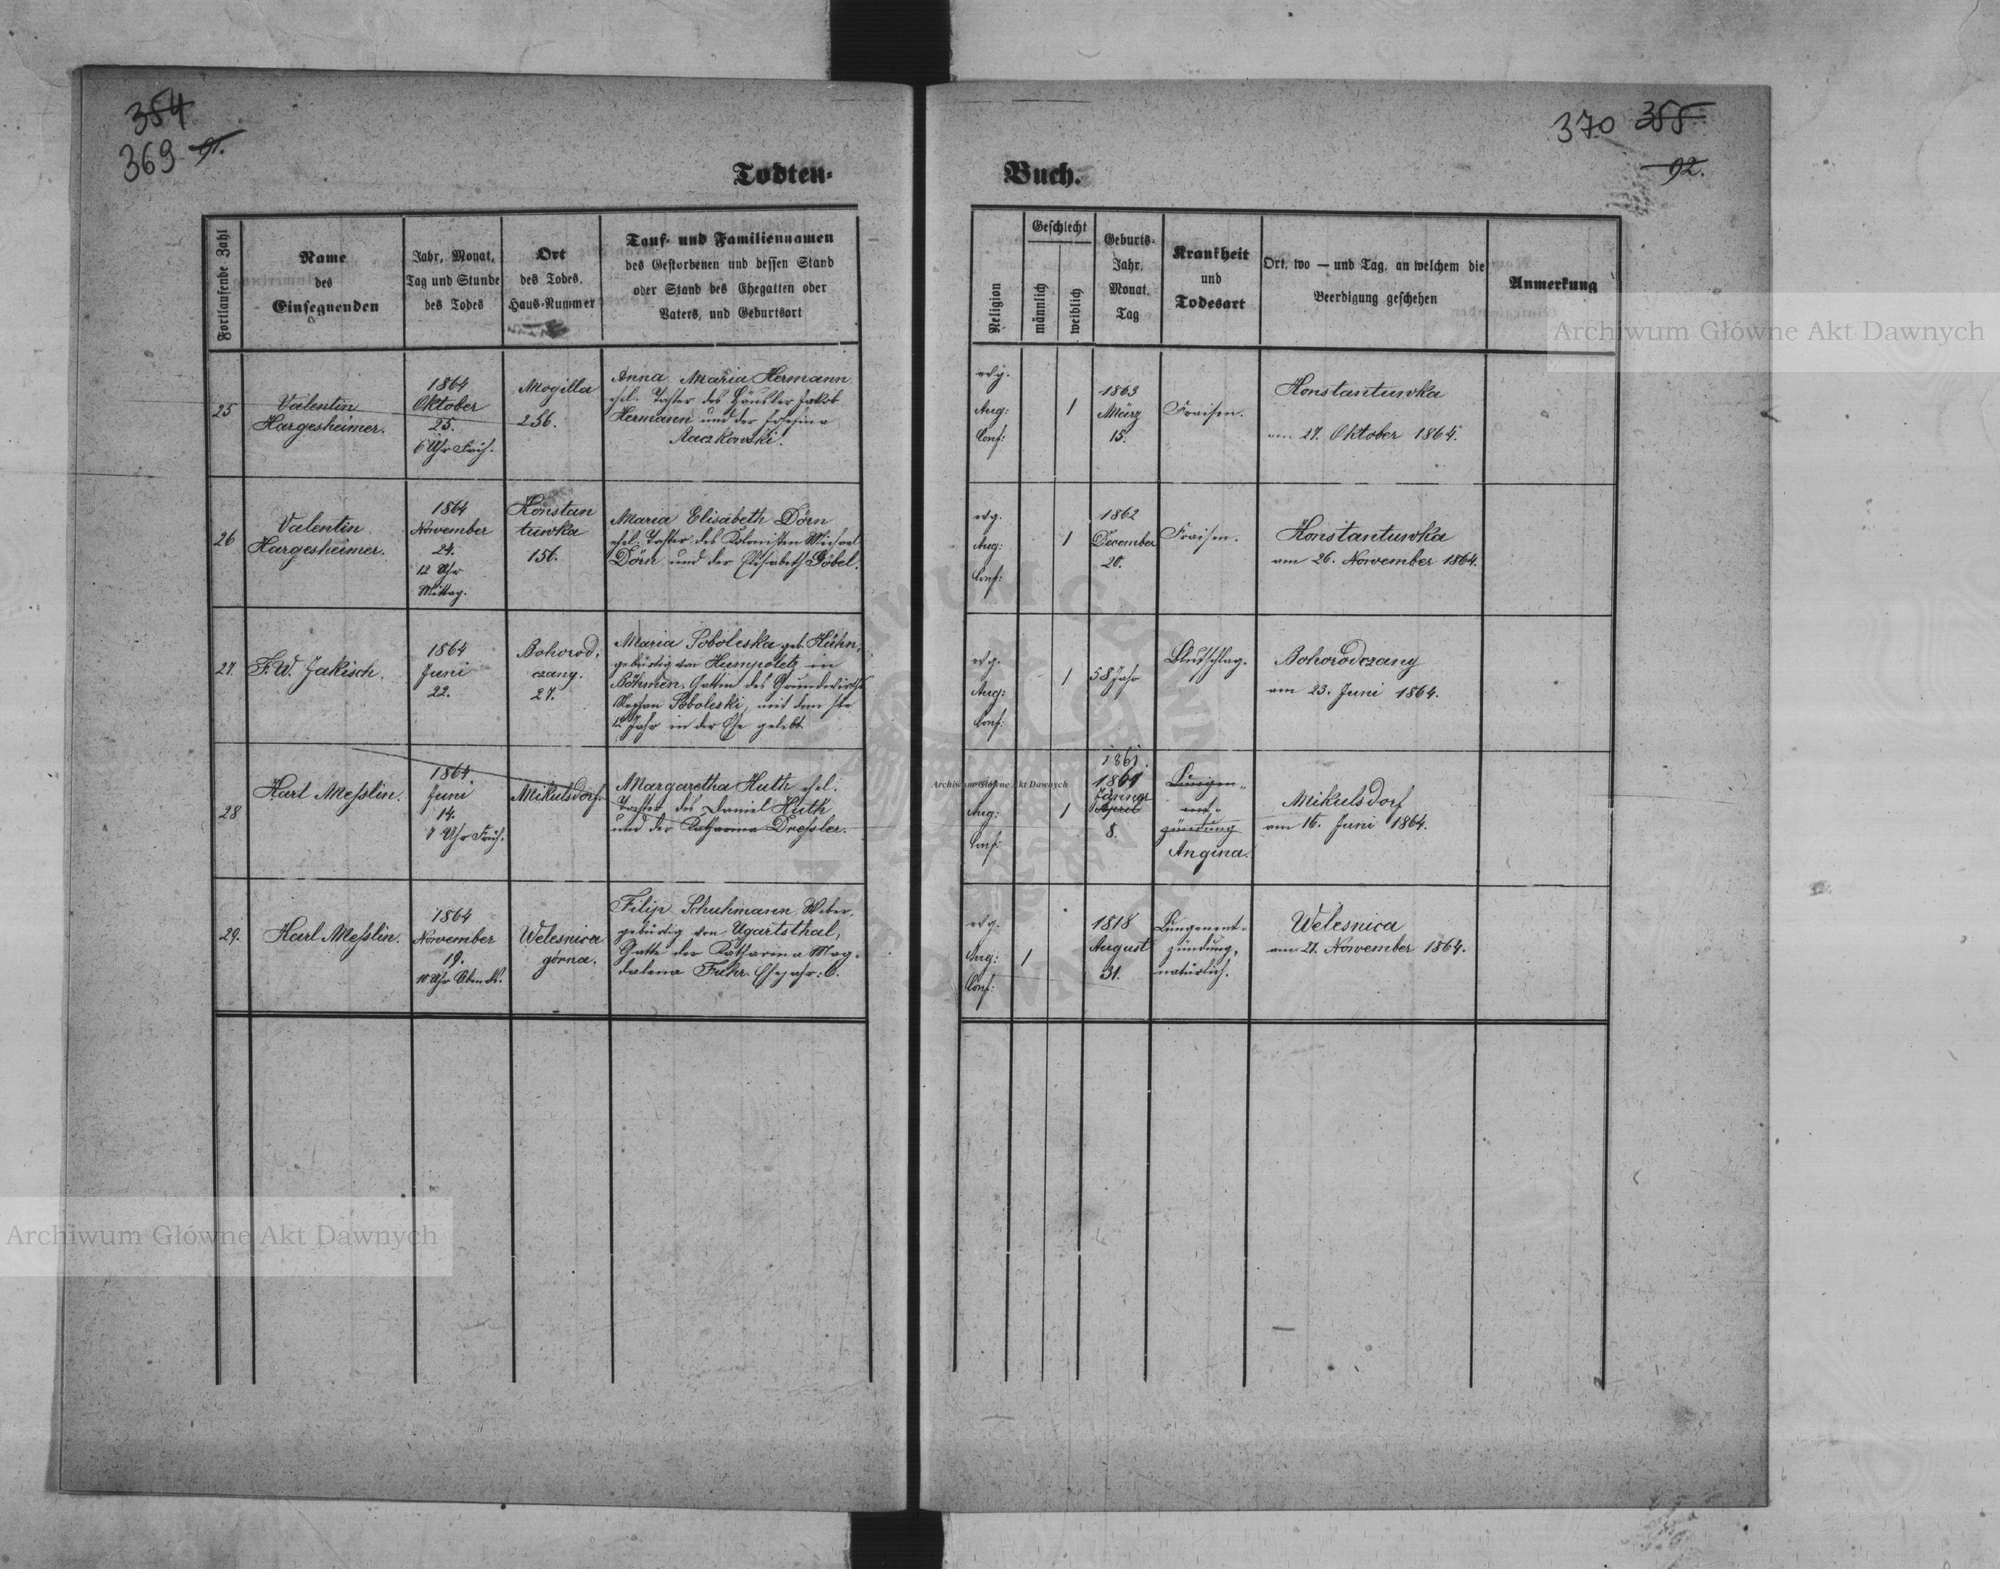 354
369 91.
370 355
92.
Todten-
Buch.
Fortlaufende Zahl
Name
des
Einsegnenden
Jahr, Monat,
Tag und Stunde
des Todes
Ort
des Todes,
Haus-Nummer
Tauf- und Familiennamen
des Gestorbenen und dessen Stand
oder Stand des Ehegatten oder
Vaters, und Geburtsort
Religion
Geschlecht
männlich
weiblich
Geburts-
Jahr,
Monat,
Tag
Krankheit
und
Todesart
Ort, wo — und Tag, an welchem die
Beerdigung geschehen
Anmerkung
25
Valentin
Hargesheimer.
1864
Oktober
25.
6 Uhr Früh.
Mogilla
256.
Anna Maria Hermann
ehl. Tochter des Häusler Jakob
Hermann und der Josefina
Raczkowski.
evg.
Aug:
Conf:
1
1863
März
15.
Fraisen.
Konstantuwka
am 27. Oktober 1864.
26
Valentin
Hargesheimer.
1864
November
24.
12 Uhr
Mittag.
Konstan
tuwka
156.
Maria Elisabeth Dörn
ehel. Tochter des Kolonisten Michael
Dörn und der Elisabeth Göbel.
evg.
Aug:
Conf:
1
1862
December
20.
Fraisen.
Konstantuwka
am 26. November 1864.
27.
F. W. Jakisch.
1864
Juni
22.
Bohorod,
czany.
27.
Maria Soboleska geb. Kühn,
gebürtig von Humpoletz in
Böhmen. Gattin des Grundwirths
Soboleski, mit dem sie
12 Jahr in der Ehe gelebt
evg.
Aug:
Conf:
1
58 Jahr
Blutschlag.
Bohorodczany
am 23. Juni 1864.
28
Karl Messlin.
1864.
Juni
14.
Uhr Früh.
Mikulsdorf.
Margaretha Huth ehl.
Tochter des Daniel Huth
und der Katharina Dressler.
Aug:
Conf:
1
1861.
1861
Jänner
April
8.
Lungen-
ent-
zündung
Angina.
Mikulsdorf
am 16. Juni 1864.
29.
Karl Messlin.
1864
November
19.
10 Uhr Abends.
Welesnica
górna.
Filip Schuhmann Weber,
gebürtig von Ugartsthal,
Gatte der Katharina Mag-
dalena Fuhr. Ehejahr: 6.
evg.
Aug:
Conf:
1
1818
August
31.
Lungenent-
zündung,
natürlich.
Welesnica
am 21. November 1864.
Archiwum Główne Akt Dawnych
Archiwum Główne Akt Dawnych
Archiwum Główne Akt Dawnych